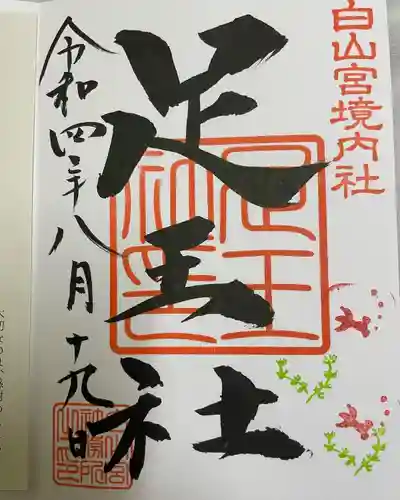 白山宮境内社
足王社
令和四年八月十九日